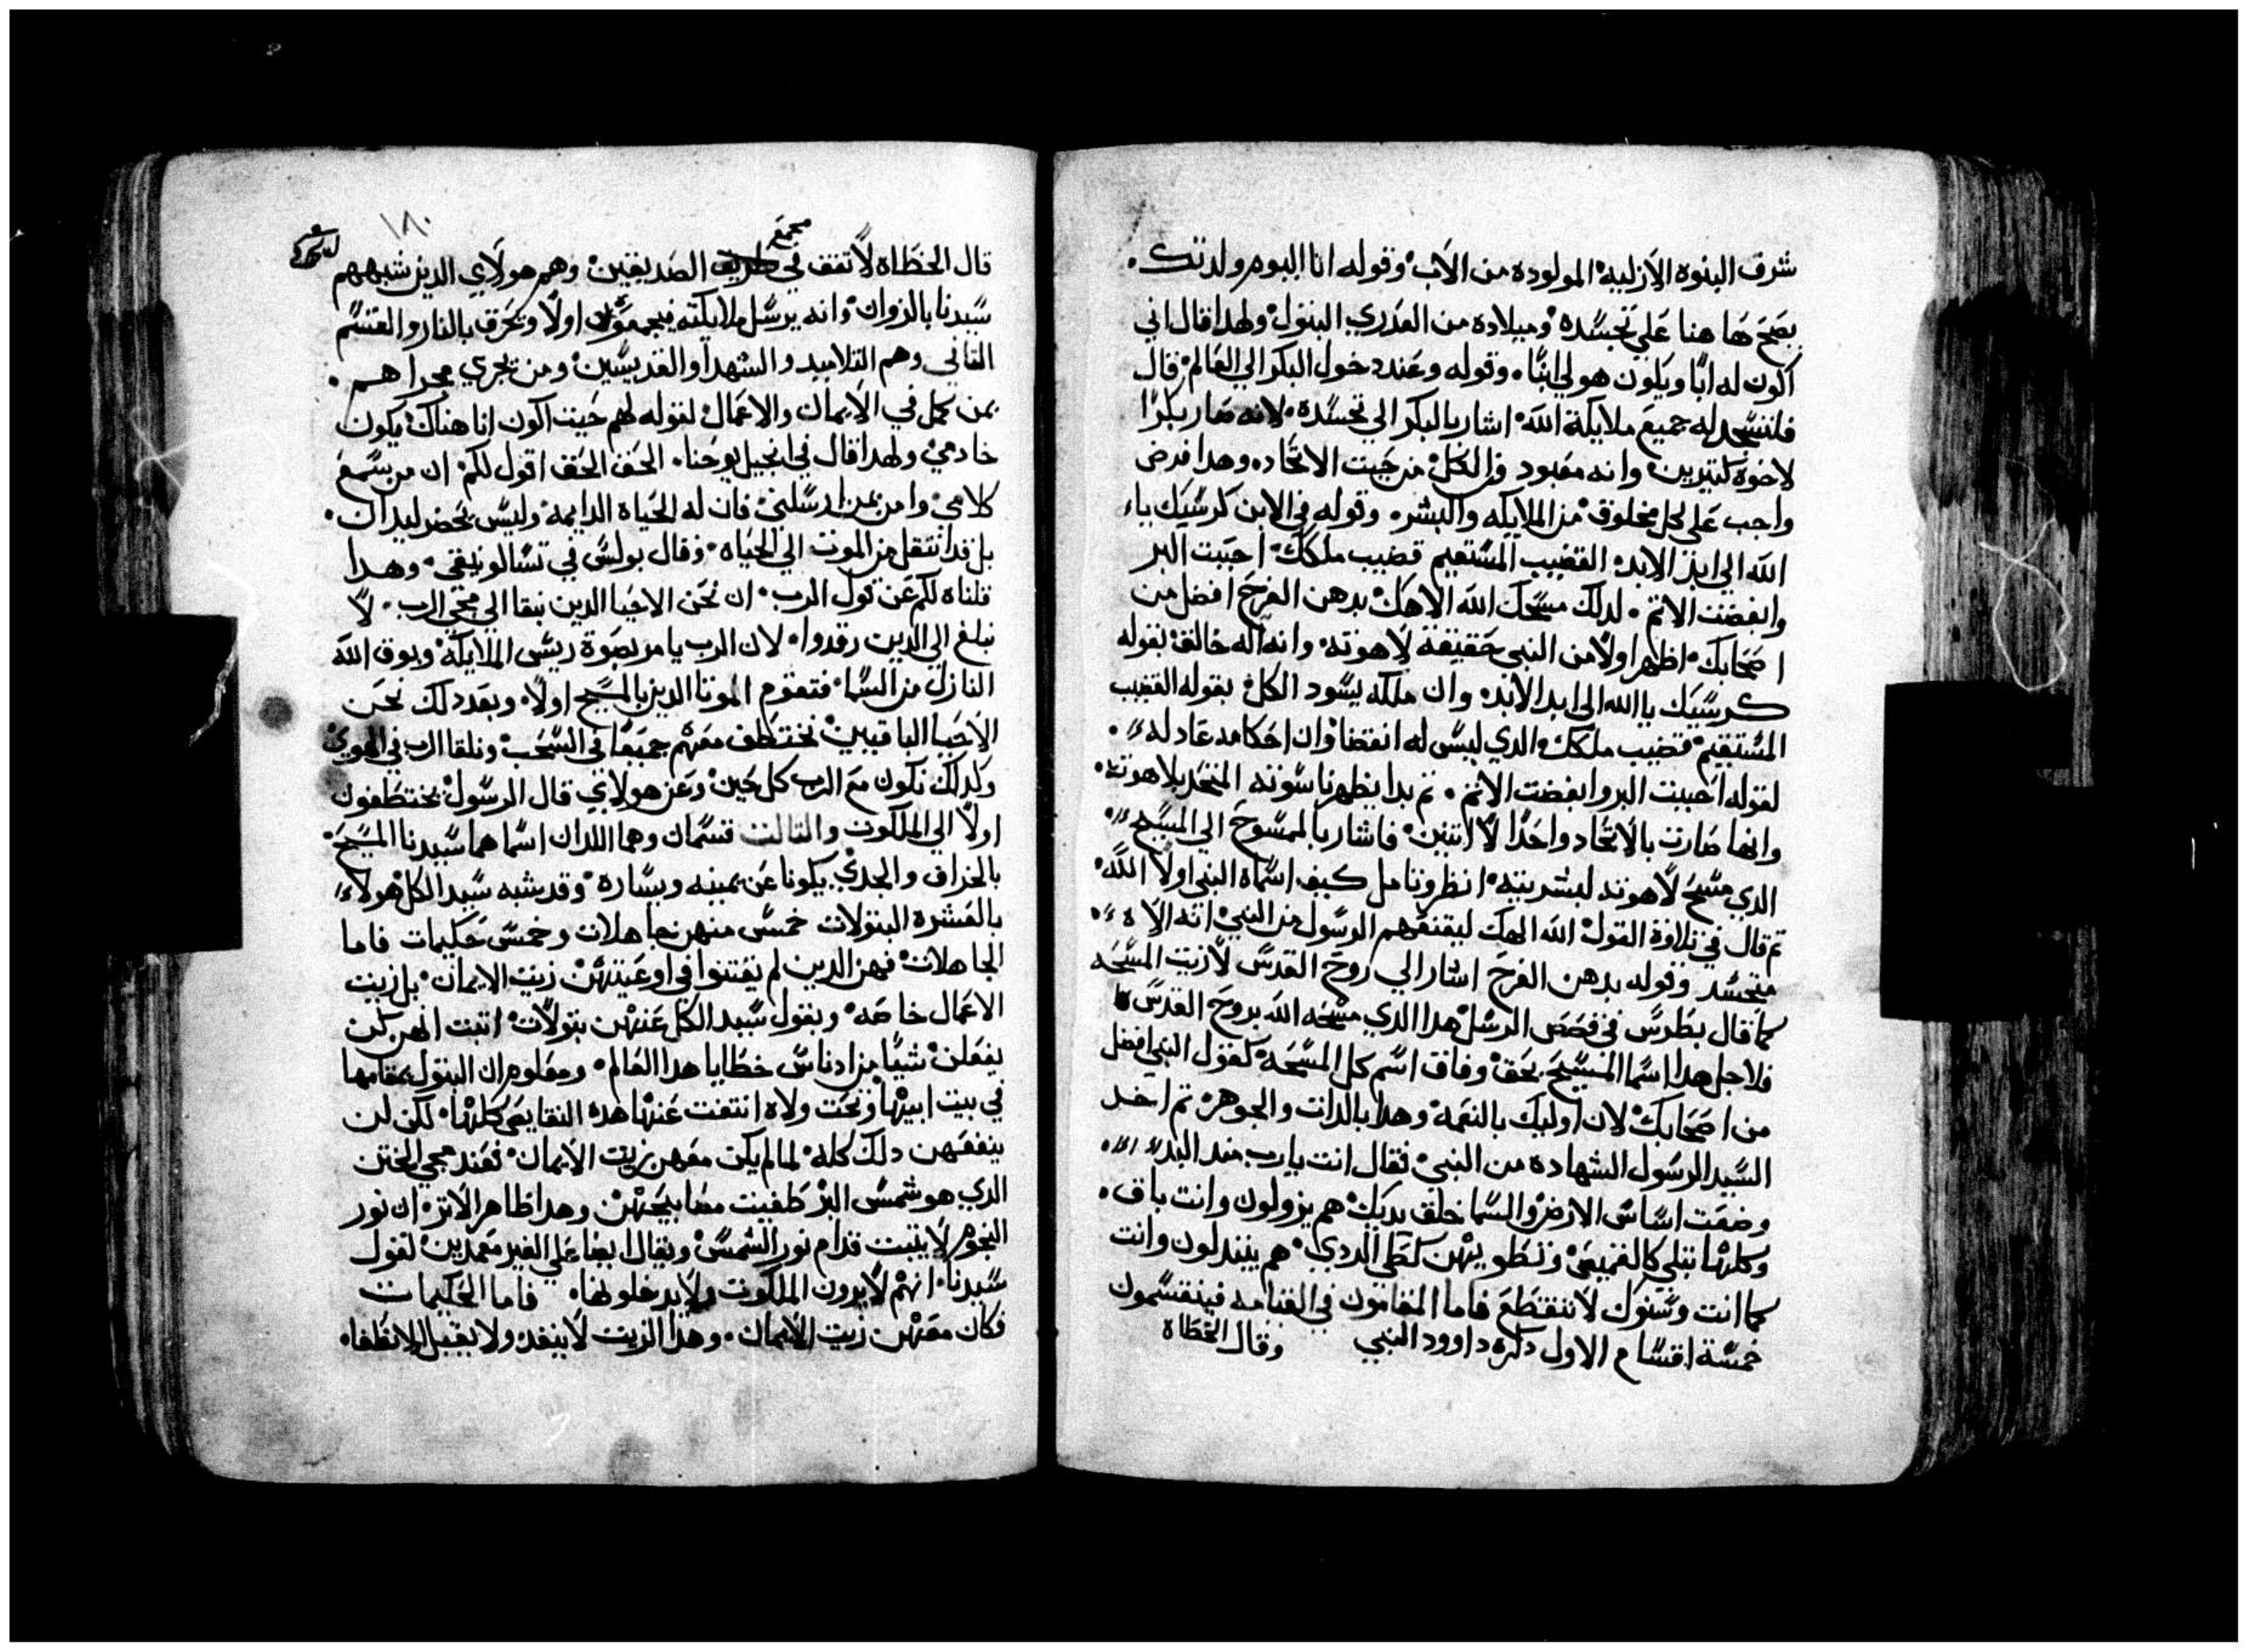 شرف البنوه الازليه المولوده من الاب وقوله انا اليوم ولدتك
يصح ها هنا على تجسده وميلاده من العدري البتول ولهدا قال اني
اكون له ابًا ويكون هو لي ابنًا وقوله وعند دخول البكر الى العالم قال
فلتسجد له جميع ملايكة الله اشار بالبكر الي تجسده لانه صار بكرًا
لاخوة كتيرين وانه معبود من الكل من حيت الاتحاد وهدا فرض
واجب على كل مخلوق من الملايكه والبشر وقوله في الابن كرسيك يا
الله الي ابد الابد القضيب المستقيم قضيب ملكك احببت البر
وابغضت الاتم لدلك مسحك الله الاهك بدهن الفرح افضل من
اصحابك اظهر اولًا من النبي حقيقة لاهوته وانه اله خالق بقوله
كرسيك ياالله الى ابد الابد وان ملكه يسود الكل بقوله القضيب
المستقيم قضيب ملكك الدي ليس له انقضا وان احكامه عادله
لقوله احببت البر وابغضت الاتم تم بدا يظهر ناسوته المتحد بلاهوته
وانها صارت بالاتحاد واحدًا لا اتنين فاشار بالممسوح الي المسيح
الدي مسح لاهوته لبشريته انظر وتامل كيف اسماه النبي اولًا الله
تم قال في تلاوة القول الله الهك ليقنعهم الرسول من النبي انه الاه
متجسد وقوله بدهن الفرح اشار الي روح القدس لا زيت المسحه
كما قال بطرس في قصص الرسل هدا الدي مسحه الله بروح القدس
فلاجل هدا اسما المسيح بحق وفاق اسم كل المسحه كقول النبي افضل
من اصحابك لان اوليك بالنعمه وهدا بالدات والجوهر تم اخد
السيد الرسول الشهاده من النبي فقال انت يارب مند البدء
وضعت اساس الارض والسما خلق يديك هم يزولون وانت باق
وكلها تبلي كالقميص وتطويهن كطي الردي هم يتبدلون وانت
كما انت وسنوك لا تنقطع فاما المقامون في القيامه فينقسمون
خمسة اقسام الاول دكره داوود النبي وقال الخطاة
١٨٠
قال الخطاه لا تقف في مجمع الصديقين وهم هولاي الدين شبههم
سيدنا بالزوان وانه يرسل ملايكته فيجمعون اولًا ويحرق بالنار والقسم
التاني وهم التلاميد والشهدا والقديسين ومن يجري مجراهم
بمن كمل في الايمان والاعمال لقوله لهم حيت اكون انا هناك يكون
خادمي ولهدا قال في انجيل يوحنا الحق الحق اقول لكم ان من سمع
كلامي وامن بمن ارسلني فان له الحياه الدايمه وليس يحضر ليدان
بل قد انتقل من الموت الي الحياه وقال بولس في تسالونيقي وهدا
قلناه لكم عن قول الرب ان نحن الاحيا الدين نبقا الي مجي الرب لا
نبلغ الي الدين رقدوا لان الرب يامر بصوة ريس الملايكة وبوق الله
النازل من السما فتقوم الموتا الدين بالمسيح اولًا وبعد دلك نحن
الاحيا الباقيين نختطف معهم جميعًا في السحب ونلقا الرب في الهوي
وكدلك نكون مع الرب كل حين وعن هولاي قال الرسول يختطفون
اولًا الي الملكوت والتالت قسمان وهما اللدان اسماهما سيدنا المسيح
بالخراف والجدي يكونا عن يمينه ويساره وقد شبه سيد الكل هولاء
بالعشره البتولات خمس منهن جاهلات وخمس حكيمات فاما
الجاهلات فهن الدين لم يقتنوا في اوعيتهن زيت الايمان بل زيت
الاعمال خاصه وبقول سيد الكل عنهن بتولات اتبت انهن لن
يفعلن شيًا من ادناس خطايا هدا العالم ومعلوم ان البتول بمقامها
في بيت ابيها وتحت ولاه انتفت عنها هده النقايص كلها لكن لن
ينفعهن دلك كله لما لم يكن معهن زيت الايمان فعند مجي الختن
الدي هو شمس البر طفيت مصابيحهن وهدا ظاهر الاتر ان نور
النجوم لا يتبت قدام نور الشمس ويقال ايضا علي الغير معمدين لقول
سيدنا انهم لا يرون الملكوت ولا يدخلونها فاما الحكيمات
فكان معهن زيت الايمان وهدا الزيت لا ينفد ولا يقبل الانطفا